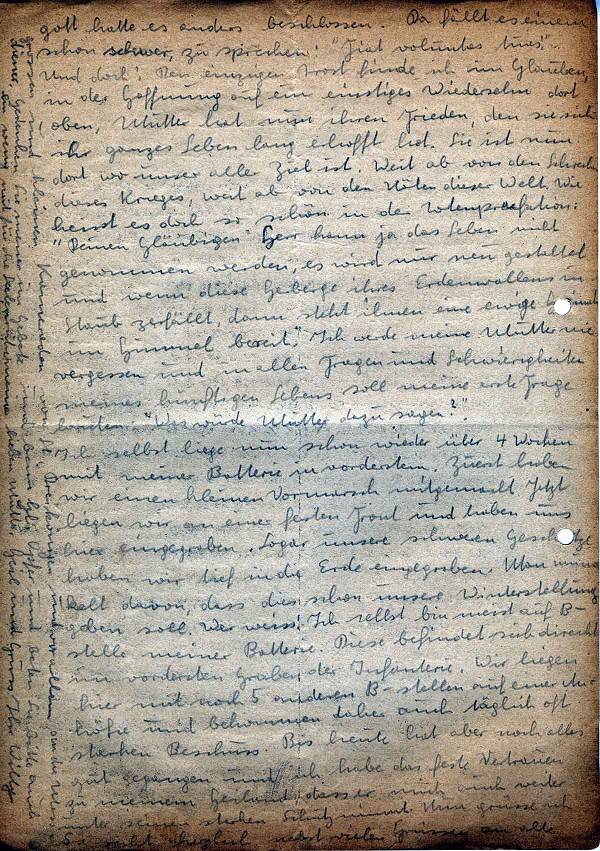 gott hatte es anders beschlossen. Da fällt es einem
schon schwer, zu sprechen: "Fiat voluntas tua!"
Und doch! Den einzigen Trost finde ich im Glauben,
in der Hoffnung auf ein einstiges Wiedersehn dort
oben, Mutter hat nun ihren Frieden, den sie sich
ihr ganzes Leben lang erhofft hat. Sie ist nun
dort wo unser aller Ziel ist. Weit ab von den Schrecken
dieses Krieges, weit ab von den Nöten dieser Welt. Wie
heisst es doch so schön in der Totenpraefation:
"Deinen Gläubigen Herr kann ja das Leben nicht
genommen werden, es wird nur neu gestaltet
und wenn diese Herberge ihres Erdenwallens in
Staub zerfällt, dann steht ihnen eine ewige Heimat
im Himmel bereit." Ich werde meine Mutter nie
vergessen und in allen Fragen und Schwierigkeiten
meines künftigen Lebens soll meine erste Frage
lauten: "Was würde Mutter dazu sagen?"
Ich selbst liege nun schon wieder über 4 Wochen
mit meiner Batterie in vorderstem. Zuerst haben
wir einen kleinen Vormarsch mitgemacht. Jetzt
liegen wir an einer festen Front und haben uns
hier eingegraben. Sogar unsere schweren Geschütze
haben wir tief in die Erde eingegraben. Man munkelt
davon, dass dies schon unsere Winterstellung
geben soll. Wer weiss! Ich selbst bin meist auf B-
stelle meiner Batterie. Diese befindet sich direkt
im vordersten Graben der Infanterie. Wir liegen
hier mit noch 5 anderen B-stellen auf einer An-
höhe und bekommen daher auch täglich oft
starken Beschuss. Bis heute hat aber noch alles
gut gegangen und ich habe das feste Vertrauen
zu meinem Heiland, dass er mich auch weiter
unter seinen starken Schutz nimmt. Nun grüsse ich
nebst vielen Grüssen an alle
grossen und kleinen Kameraden von St. Dreikönigen und vor allem an die
diener. Gedenken Sie meiner im Gebete und beim hlg. Opfer und beten Sie bitte auch
ein wenig mit für die Seelenruhe meiner lieben Mutter. Gesl und Gruss Ihr Willy